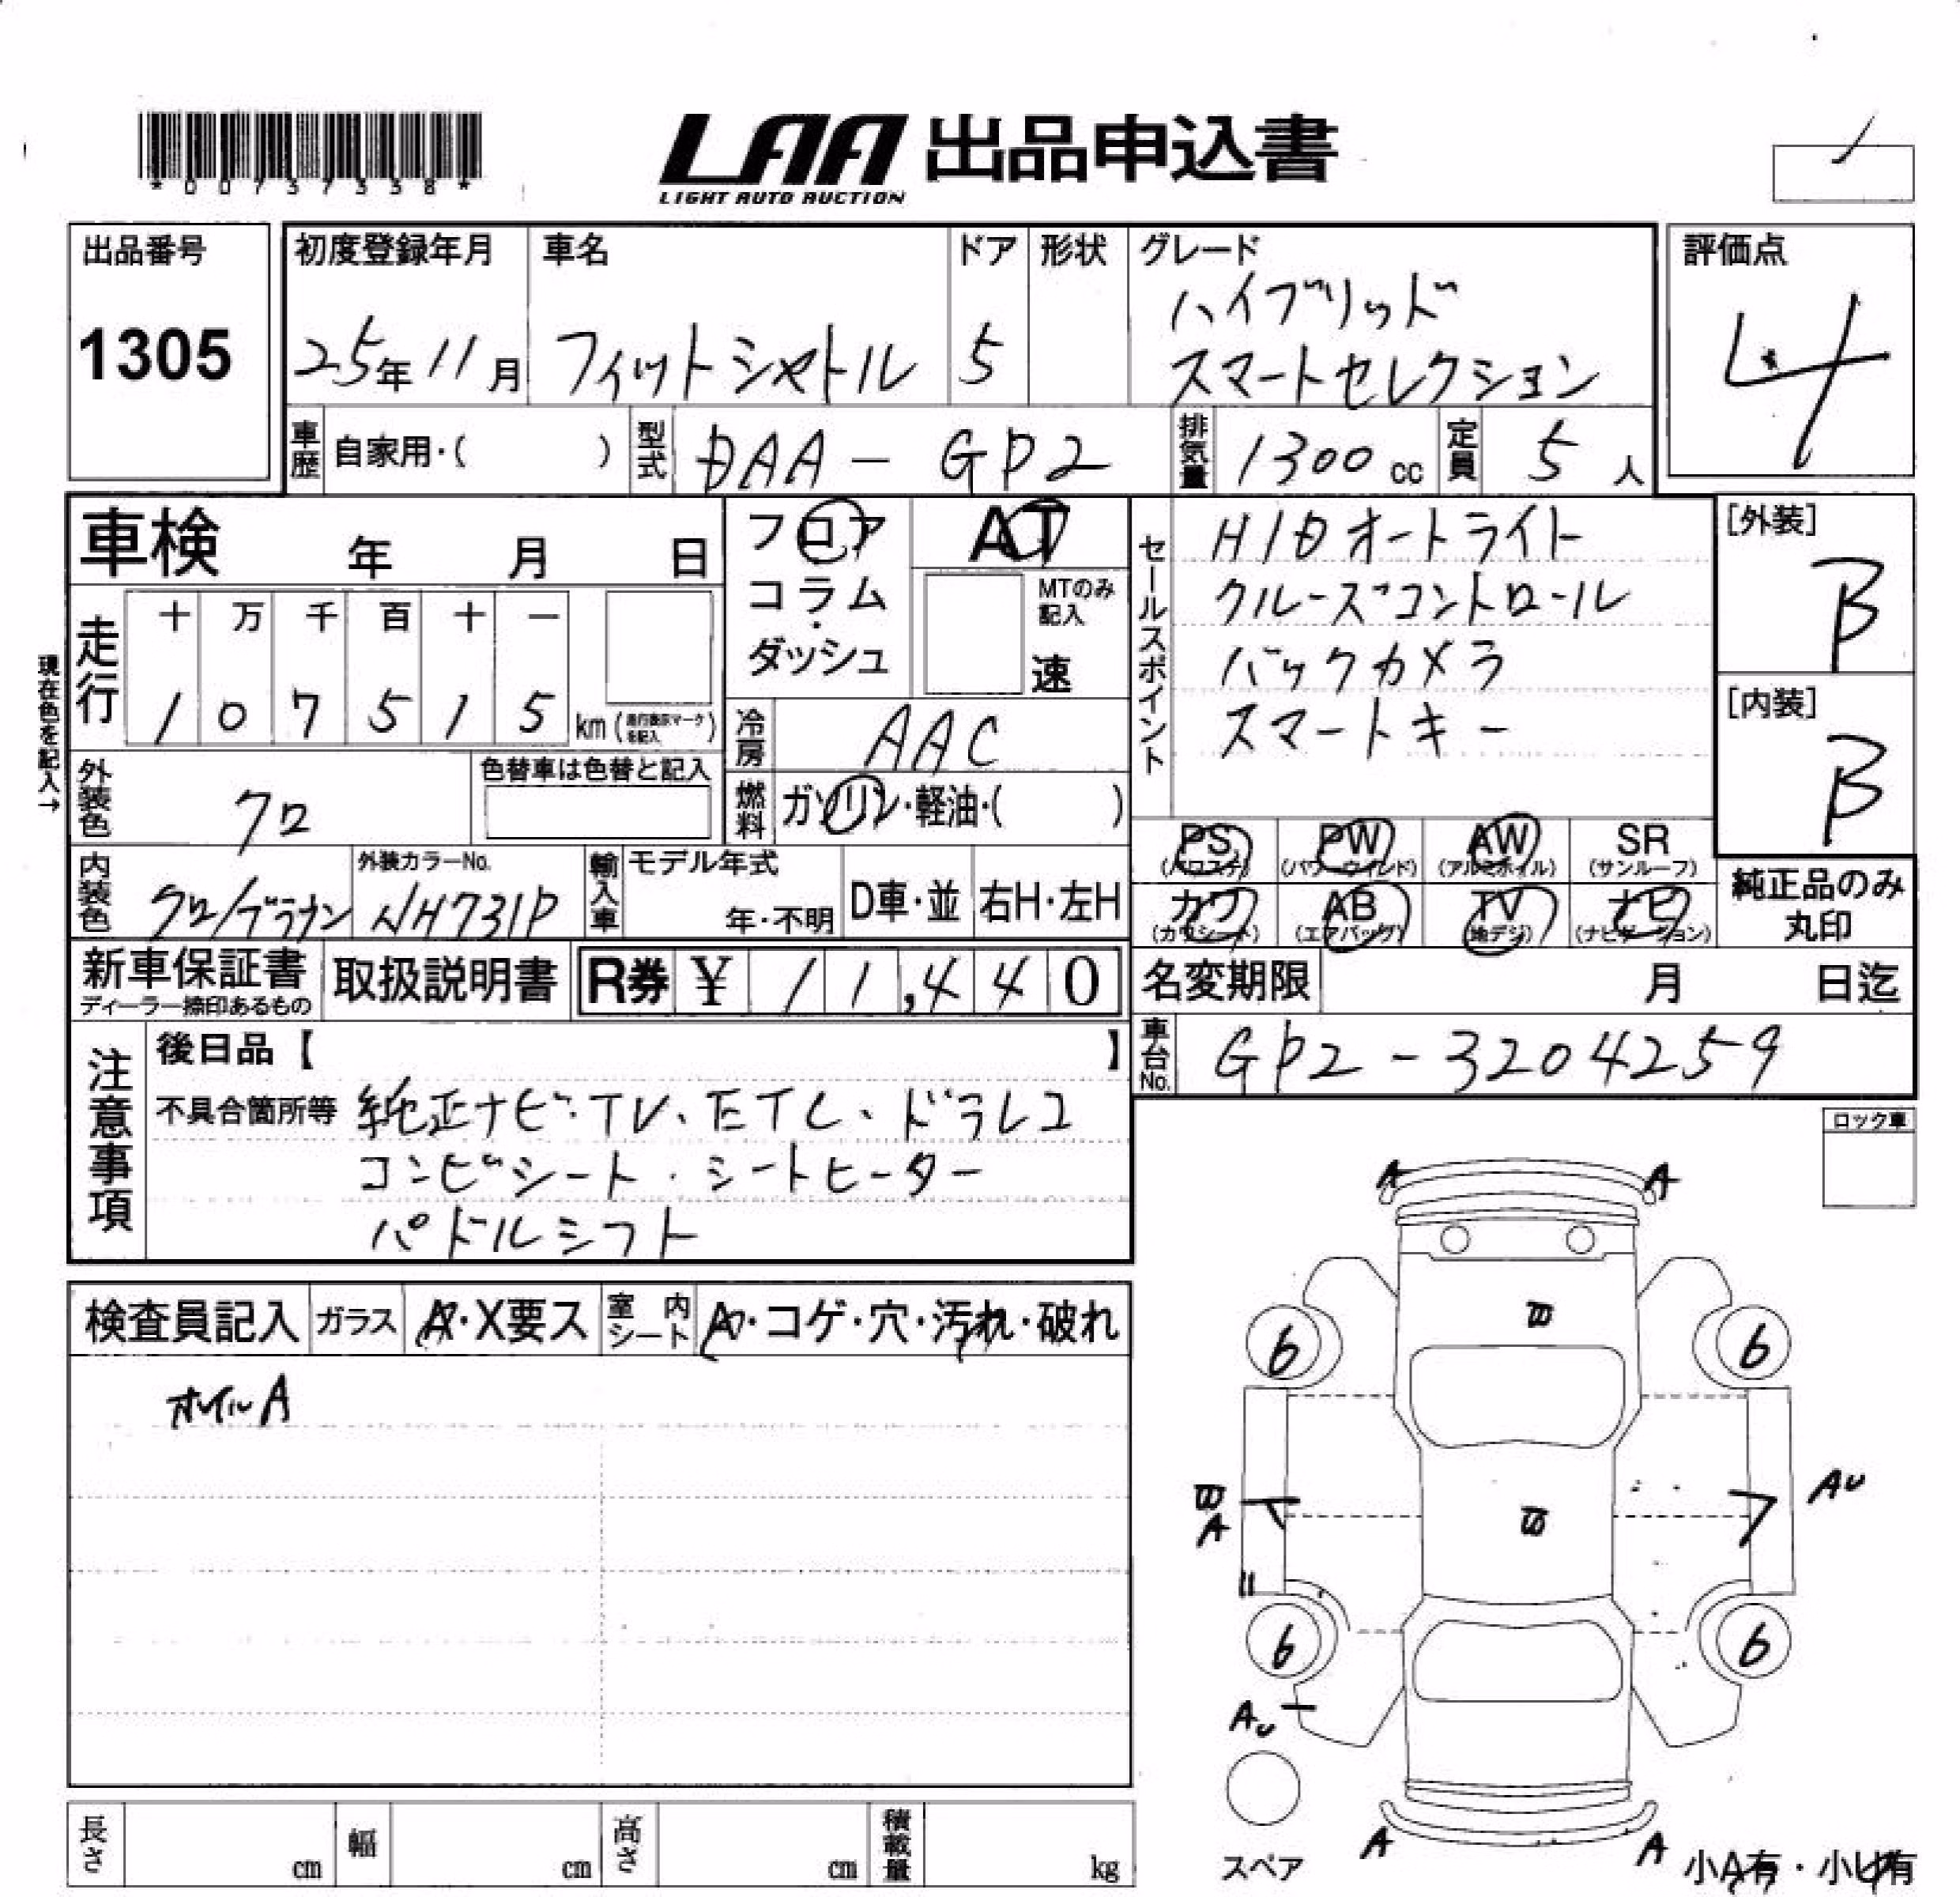 *00737338*
LAA 出品申込書
LIGHT AUTO AUCTION
出品番号
1305
初度登録年月
25年11月
車名
フィットシャトル
ドア
5
形状
グレード
ハイブリッド
スマートセレクション
評価点
4
車歴 自家用・( )
型式 DAA-GP2
排気量 1300cc
定員 5人
車検 年 月 日
フロア
コラム
・
ダッシュ
AT
MTのみ
記入
速
現在色を記入→
走行
十 万 千 百 十 一
1 0 7 5 1 5 km(走行表示マークを記入)
冷房 AAC
燃料 ガソリン・軽油・( )
外装色 クロ
色替車は色替と記入
内装色 クロ/ブラウン
外装カラーNo.
NH731P
輸入車 モデル年式
年・不明
D車・並
右H・左H
セールスポイント
HIDオートライト
クルーズコントロール
バックカメラ
スマートキー
[外装]
B
[内装]
B
PS (パワステ)
PW (パワーウインド)
AW (アルミホイル)
SR (サンルーフ)
カワ (カワシート)
AB (エアバッグ)
TV (地デジ)
ナビ (ナビゲーション)
純正品のみ
丸印
新車保証書
ディーラー捺印あるもの
取扱説明書
R券 ¥ 11,440
名変期限 月 日迄
車台No. GP2-3204259
注意事項
後日品【 】
不具合箇所等 純正ナビ・TV、ETC、ドラレコ
コンビシート・シートヒーター
パドルシフト
ロック車
検査員記入
ガラス A・X要ス
室内シート A・コゲ・穴・汚れ・破れ
ホイルA
A A
B
6 6
B
A
B
AU
6 6
AU
スペア
A A
小A有・小U有
長さ cm
幅 cm
高さ cm
積載量 kg